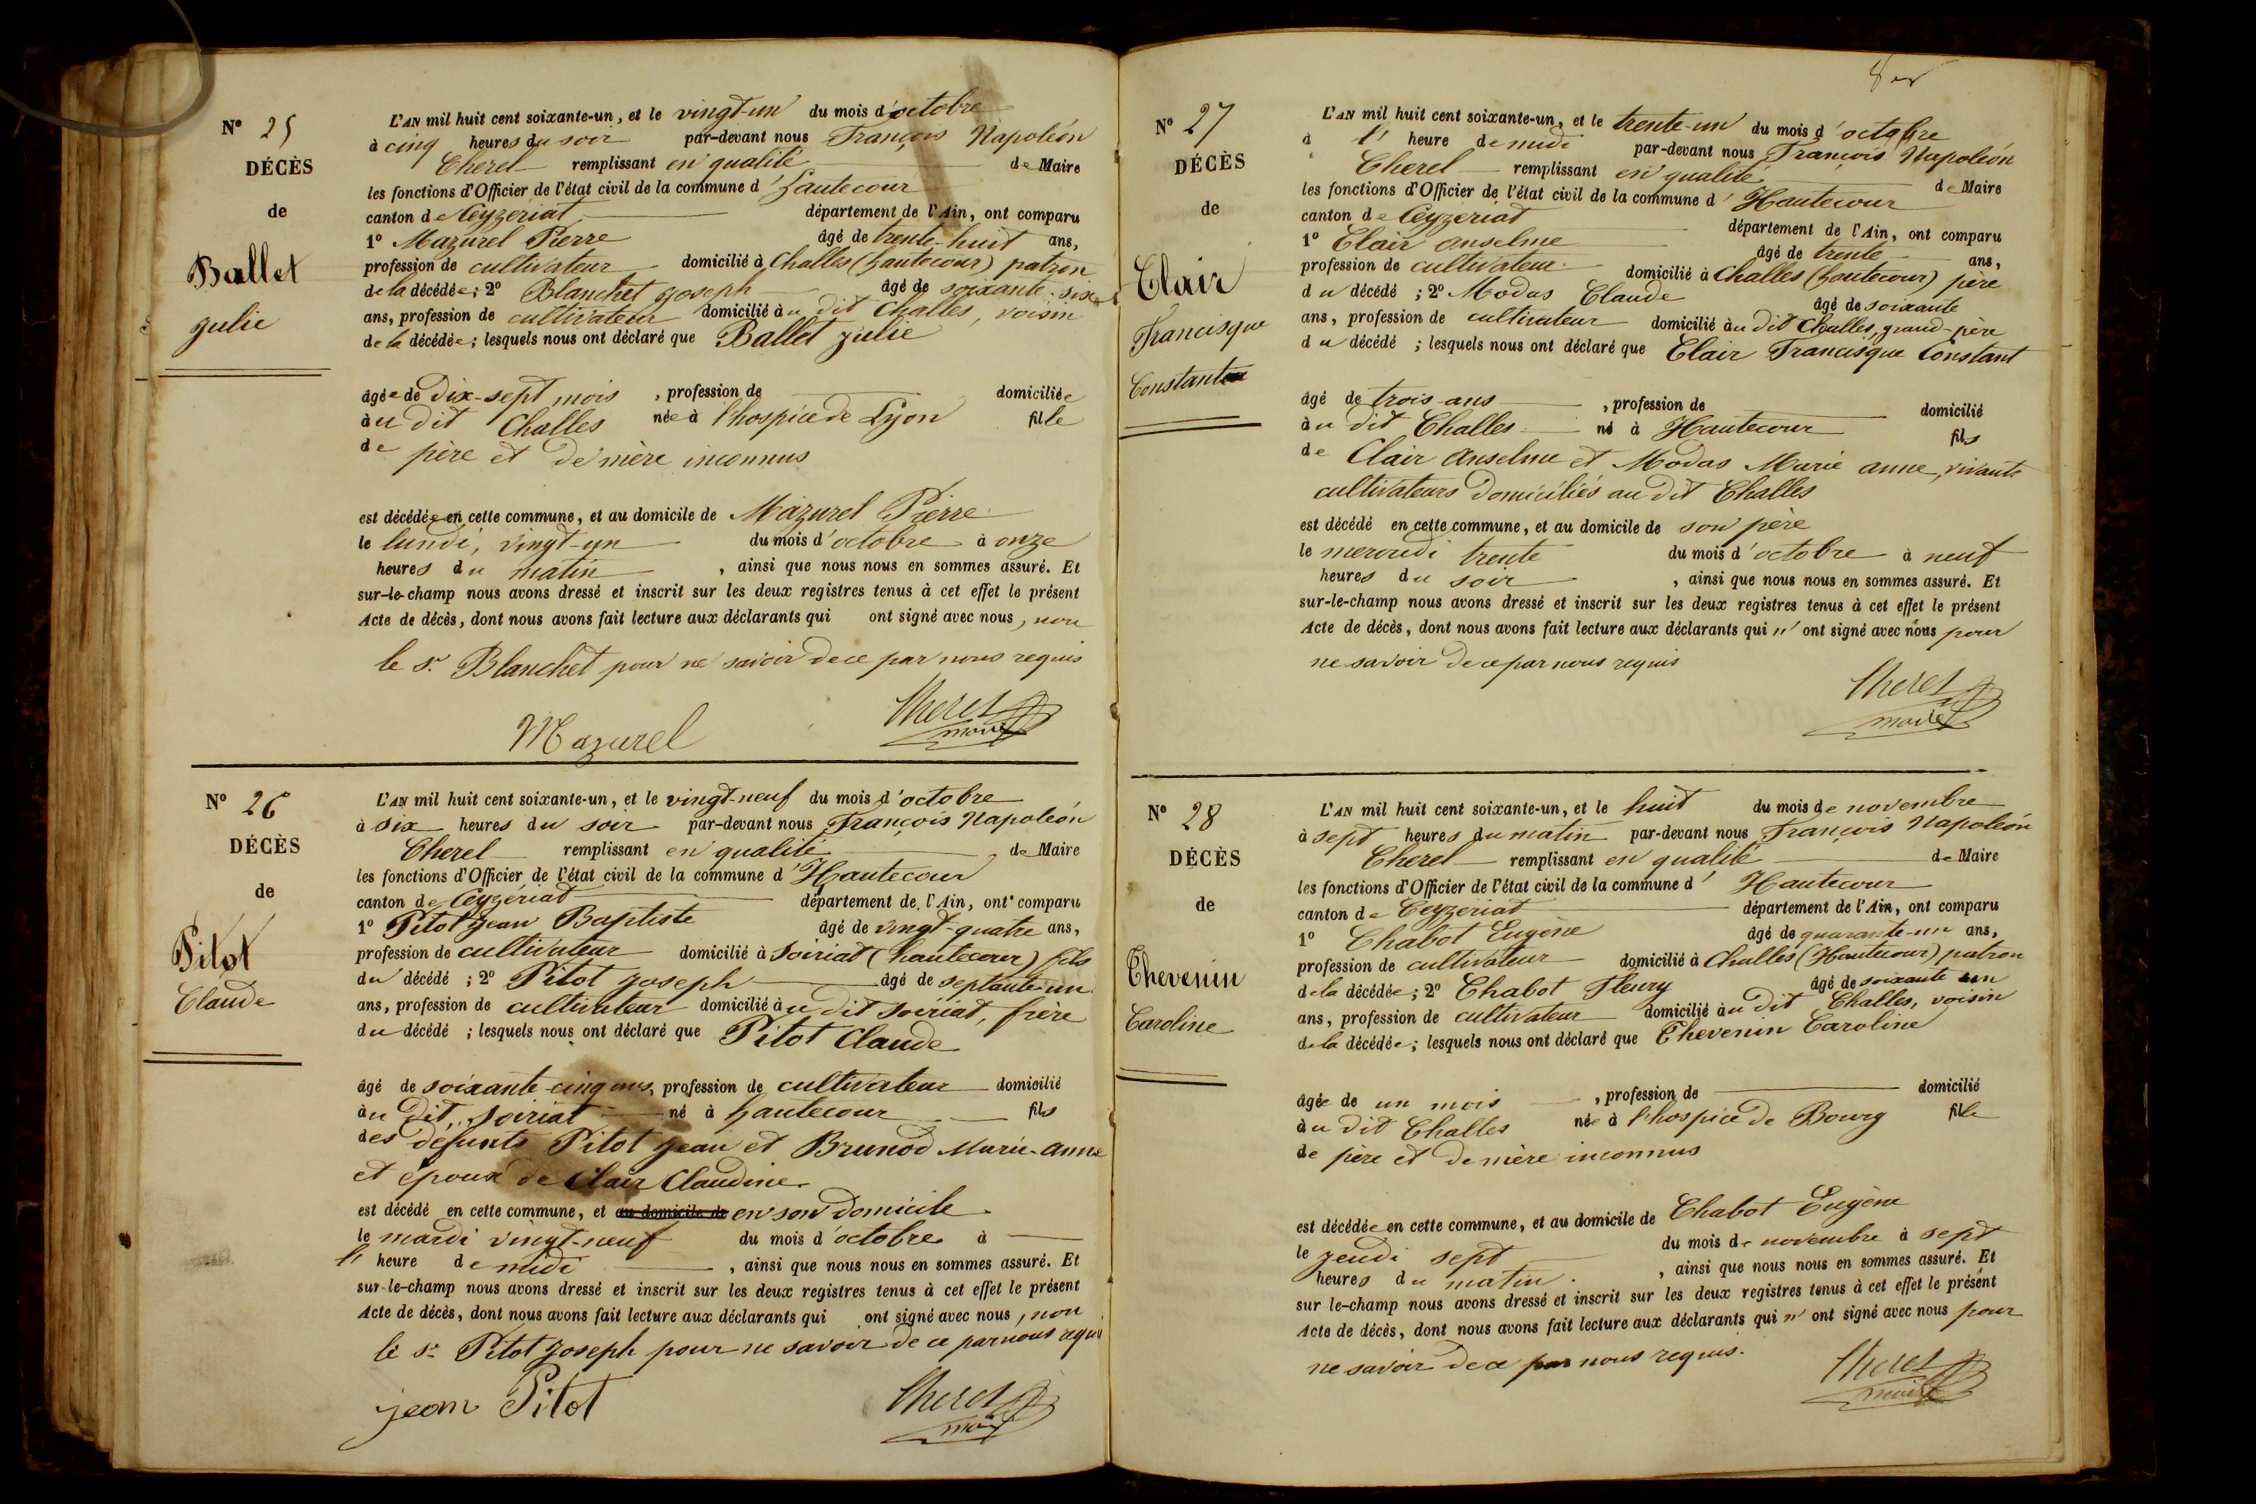 N° 25
DÉCÈS
de
Ballet
Julie
L'AN mil huit cent soixante-un, et le vingt-un du mois d'octobre
à cinq heures du soir par-devant nous François Napoléon
Cherel remplissant en qualité de Maire
les fonctions d'Officier de l'état civil de la commune d'hautecour
canton de Ceyzériat département de l'Ain, ont comparu
1° Mazurel Pierre âgé de trente-huit ans,
profession de cultivateur domicilié à Challes (hautecour) patron
de la décédée; 2° Blanchet Joseph âgé de soixante-six
ans, profession de cultivateur domicilié au dit Challes, voisin
de la décédée; lesquels nous ont déclaré que Ballet Julie
âgée de dix-sept mois, profession de domiciliée
au dit Challes née à l'hospice de Lyon fille
de père et de mère inconnus
est décédée en cette commune, et au domicile de Mazurel Pierre
le lundi, vingt-un du mois d'octobre à onze
heures du matin, ainsi que nous nous en sommes assuré. Et
sur-le-champ nous avons dressé et inscrit sur les deux registres tenus à cet effet le présent
Acte de décès, dont nous avons fait lecture aux déclarants qui ont signé avec nous, non
le sr Blanchet pour ne savoir de ce par nous requis
Mazurel Cherel
maire
N° 26
DÉCÈS
de
Pitot
Claude
L'AN mil huit cent soixante-un, et le vingt-neuf du mois d'octobre
à six heures du soir par-devant nous François Napoléon
Cherel remplissant en qualité de Maire
les fonctions d'Officier de l'état civil de la commune d'Hautecour
canton de Ceyzériat département de l'Ain, ont comparu
1° Pitot Jean Baptiste âgé de vingt-quatre ans,
profession de cultivateur domicilié à Soiriat (hautecour) fils
du décédé; 2° Pitot Joseph âgé de septante-un
ans, profession de cultivateur domicilié au dit Soiriat, frère
du décédé; lesquels nous ont déclaré que Pitot Claude
âgé de soixante-cinq ans, profession de cultivateur domicilié
au dit, Soiriat né à hautecour fils
des défunts Pitot Jean et Brunod Marie-anne
et époux de Clair Claudine
est décédé en cette commune, et au domicile de en son domicile
le mardi vingt-neuf du mois d'octobre à
l' heure de midi, ainsi que nous nous en sommes assuré. Et
sur-le-champ nous avons dressé et inscrit sur les deux registres tenus à cet effet le présent
Acte de décès, dont nous avons fait lecture aux déclarants qui ont signé avec nous, non
le sr Pitot Joseph pour ne savoir de ce par nous requis
jean Pitot Cherel
maire
N° 27
DÉCÈS
de
Clair
Francisque
Constant
L'AN mil huit cent soixante-un, et le trente-un du mois d'octobre
à l' heure de midi par-devant nous François Napoléon
Cherel remplissant en qualité de Maire
les fonctions d'Officier de l'état civil de la commune d'Hautecour
canton de Ceyzériat département de l'Ain, ont comparu
1° Clair anselme âgé de trente ans,
profession de cultivateur domicilié à Challes (hautecour) père
du décédé; 2° Modas Claude âgé de soixante
ans, profession de cultivateur domicilié au dit Challes, grand-père
du décédé; lesquels nous ont déclaré que Clair Francisque Constant
âgé de trois ans, profession de domicilié
au dit Challes né à Hautecour fils
de Clair anselme et Modas Marie anne, vivants
cultivateurs domiciliés au dit Challes
est décédé en cette commune, et au domicile de son père
le mercredi trente du mois d'octobre à neuf
heures du soir, ainsi que nous nous en sommes assuré. Et
sur-le-champ nous avons dressé et inscrit sur les deux registres tenus à cet effet le présent
Acte de décès, dont nous avons fait lecture aux déclarants qui n'ont signé avec nous pour
ne savoir de ce par nous requis
Cherel
maire
N° 28
DÉCÈS
de
Thevenin
Caroline
L'AN mil huit cent soixante-un, et le huit du mois de novembre
à sept heures du matin par-devant nous François Napoléon
Cherel remplissant en qualité de Maire
les fonctions d'Officier de l'état civil de la commune d'Hautecour
canton de Ceyzériat département de l'Ain, ont comparu
1° Chabot Eugène âgé de quarante-un ans,
profession de cultivateur domicilié à Challes (Hautecour) patron
de la décédée; 2° Chabot Fleury âgé de soixante un
ans, profession de cultivateur domicilié au dit Challes, voisin
de la décédée; lesquels nous ont déclaré que Thevenin Caroline
âgée de un mois, profession de domicilié
au dit Challes née à l'hospice de Bourg fille
de père et de mère inconnus
est décédée en cette commune, et au domicile de Chabot Eugène
le jeudi sept du mois de novembre à sept
heures du matin, ainsi que nous nous en sommes assuré. Et
sur le-champ nous avons dressé et inscrit sur les deux registres tenus à cet effet le présent
Acte de décès, dont nous avons fait lecture aux déclarants qui n'ont signé avec nous pour
ne savoir de ce par nous requis.
Cherel
maire